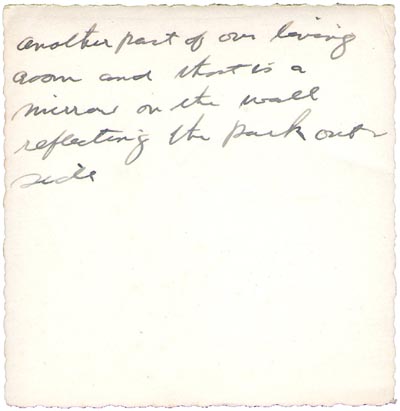 another part of our living
room and that is a
mirror on the wall
reflecting the park out
side